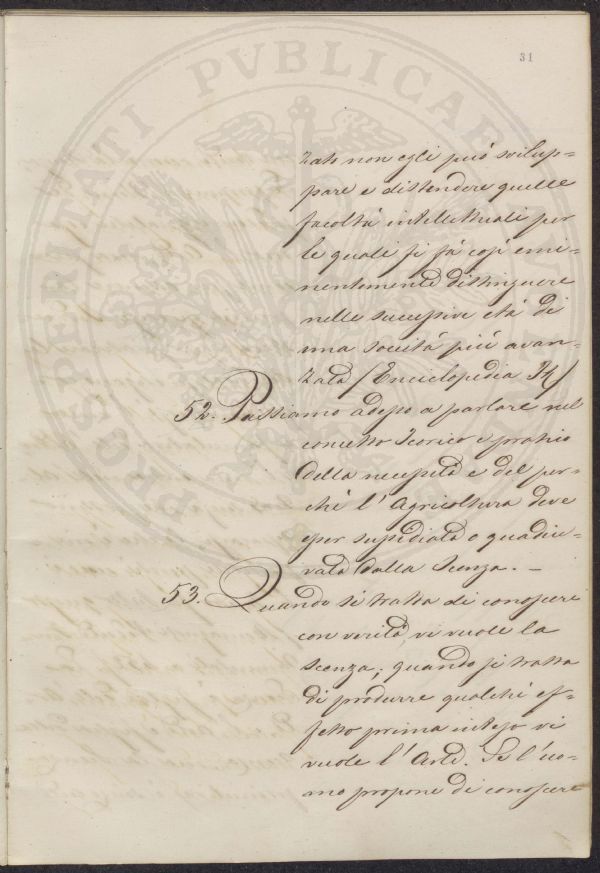 31
PROSPERITATI PVBLICAE
zato non egli può svilup=
pare e distendere quelle
facoltà intellettuali per
le quali si fà così emi=
nentemente distinguere
nelle successive età di
una società più avan=
zata (Enciclopedia
52. Passiamo adesso a parlare nel
concetto Teorico e pratico
della necessità e del per=
chè l'Agricoltura deve
esser sussidiata o
vata dalla Scenza. —
53. Quando si tratta di conoscere
con verità vi vuole la
scenza; quando si tratta
di produrre qualchè ef=
fetto prima inteso vi
vuole l'Arte. Se l'uo=
mo propone di conoscere